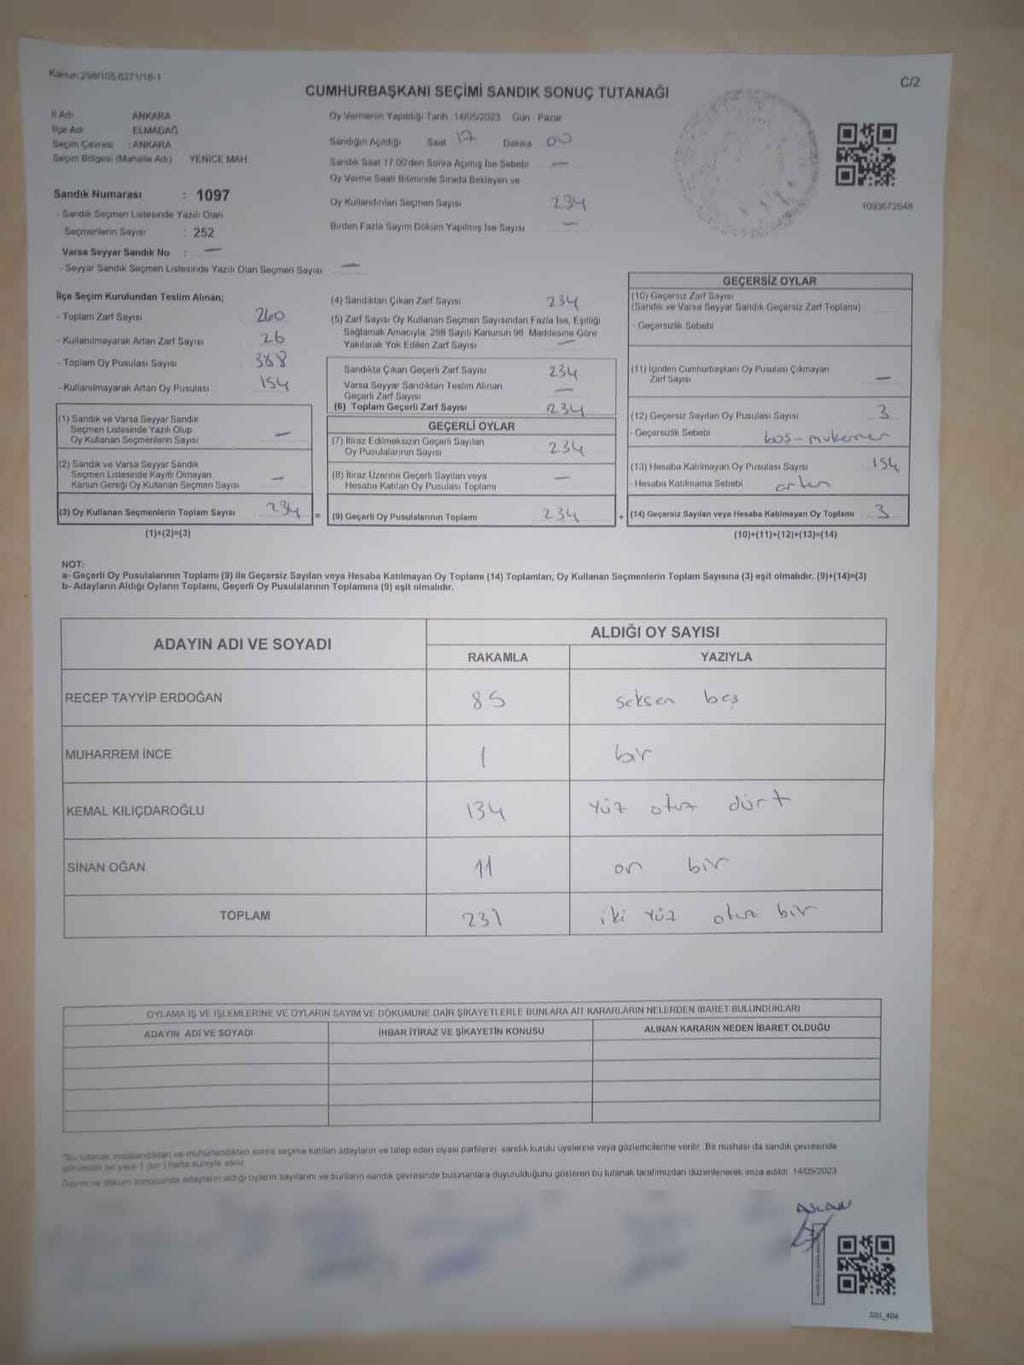 Kanun:298/105,6271/16-1
C/2
CUMHURBAŞKANI SEÇİMİ SANDIK SONUÇ TUTANAĞI
İl Adı ANKARA
İlçe Adı ELMADAĞ
Seçim Çevresi : ANKARA
Seçim Bölgesi (Mahalle Adı) YENİCE MAH.
Sandık Numarası : 1097
- Sandık Seçmen Listesinde Yazılı Olan
Seçmenlerin Sayısı : 252
Varsa Seyyar Sandık No : —
- Seyyar Sandık Seçmen Listesinde Yazılı Olan Seçmen Sayısı —
Oy Vermenin Yapıldığı Tarih :14/05/2023 Gün : Pazar
Sandığın Açıldığı Saat 17 Dakika 00
Sandık Saat 17.00'den Sonra Açılmış İse Sebebi —
Oy Verme Saati Bitiminde Sırada Bekleyen ve
Oy Kullandırılan Seçmen Sayısı 234
Birden Fazla Sayım Döküm Yapılmış İse Sayısı —
1093672648
İlçe Seçim Kurulundan Teslim Alınan;
- Toplam Zarf Sayısı 260
- Kullanılmayarak Artan Zarf Sayısı 26
- Toplam Oy Pusulası Sayısı 388
- Kullanılmayarak Artan Oy Pusulası 154
(1) Sandık ve Varsa Seyyar Sandık
Seçmen Listesinde Yazılı Olup
Oy Kullanan Seçmenlerin Sayısı —
(2) Sandık ve Varsa Seyyar Sandık
Seçmen Listesinde Kayıtlı Olmayan
Kanun Gereği Oy Kullanan Seçmen Sayısı —
(3) Oy Kullanan Seçmenlerin Toplam Sayısı 234 =
(1)+(2)=(3)
(4) Sandıktan Çıkan Zarf Sayısı 234
(5) Zarf Sayısı Oy Kullanan Seçmen Sayısından Fazla İse, Eşitliği
Sağlamak Amacıyla, 298 Sayılı Kanunun 98. Maddesine Göre
Yakılarak Yok Edilen Zarf Sayısı —
Sandıkta Çıkan Geçerli Zarf Sayısı 234
Varsa Seyyar Sandıktan Teslim Alınan
Geçerli Zarf Sayısı —
(6) Toplam Geçerli Zarf Sayısı 234
GEÇERLİ OYLAR
(7) İtiraz Edilmeksizin Geçerli Sayılan
Oy Pusulalarının Sayısı 234
(8) İtiraz Üzerine Geçerli Sayılan veya
Hesaba Katılan Oy Pusulası Toplamı —
(9) Geçerli Oy Pusulalarının Toplamı 234 +
GEÇERSİZ OYLAR
(10) Geçersiz Zarf Sayısı
(Sandık ve Varsa Seyyar Sandık Geçersiz Zarf Toplamı)
- Geçersizlik Sebebi
(11) İçinden Cumhurbaşkanı Oy Pusulası Çıkmayan
Zarf Sayısı —
(12) Geçersiz Sayılan Oy Pusulası Sayısı 3
- Geçersizlik Sebebi boş-mükerrer
(13) Hesaba Katılmayan Oy Pusulası Sayısı 154
- Hesaba Katılmama Sebebi artan
(14) Geçersiz Sayılan veya Hesaba Katılmayan Oy Toplamı 3
(10)+(11)+(12)+(13)=(14)
NOT:
a- Geçerli Oy Pusulalarının Toplamı (9) ile Geçersiz Sayılan veya Hesaba Katılmayan Oy Toplamı (14) Toplamları, Oy Kullanan Seçmenlerin Toplam Sayısına (3) eşit olmalıdır. (9)+(14)=(3)
b- Adayların Aldığı Oyların Toplamı, Geçerli Oy Pusulalarının Toplamına (9) eşit olmalıdır.
ADAYIN ADI VE SOYADI
ALDIĞI OY SAYISI
RAKAMLA YAZIYLA
RECEP TAYYİP ERDOĞAN 85 seksen beş
MUHARREM İNCE 1 bir
KEMAL KILIÇDAROĞLU 134 Yüz otuz dört
SİNAN OĞAN 11 on bir
TOPLAM 231 iki Yüz otuz bir
OYLAMA İŞ VE İŞLEMLERİNE VE OYLARIN SAYIM VE DÖKÜMÜNE DAİR ŞİKAYETLERLE BUNLARA AİT KARARLARIN NELERDEN İBARET BULUNDUKLARI
ADAYIN ADI VE SOYADI İHBAR İTİRAZ VE ŞİKAYETİN KONUSU ALINAN KARARIN NEDEN İBARET OLDUĞU
"Bu tutanak imzalandıktan ve mühürlendikten sonra seçime katılan adayların ve talep eden siyasi partilerin sandık kurulu üyelerine veya gözlemcilerine verilir. Bir nüshası da sandık çevresinde
görülecek bir yere 1 (bir) hafta süreyle asılır.
Seçim ve döküm sonucunda adayların aldığı oyların sayılarını ve bunların sandık çevresinde bulunanlara duyurulduğunu gösteren bu tutanak tarafımızdan düzenlenerek imza edildi. 14/05/2023
ASLAN